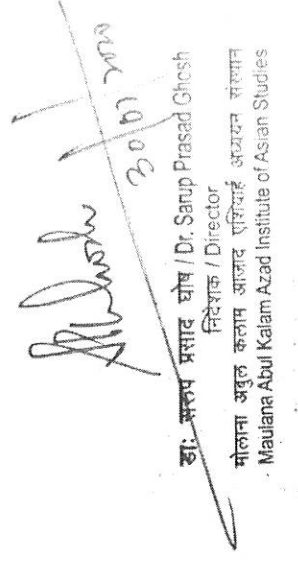 डा: सरुप प्रसाद घोष / Dr. Sarup Prasad Ghosh
निदेशक / Director
मौलाना अबुल कलाम आजाद एशियाई अध्ययन संस्थान
Maulana Abul Kalam Azad Institute of Asian Studies